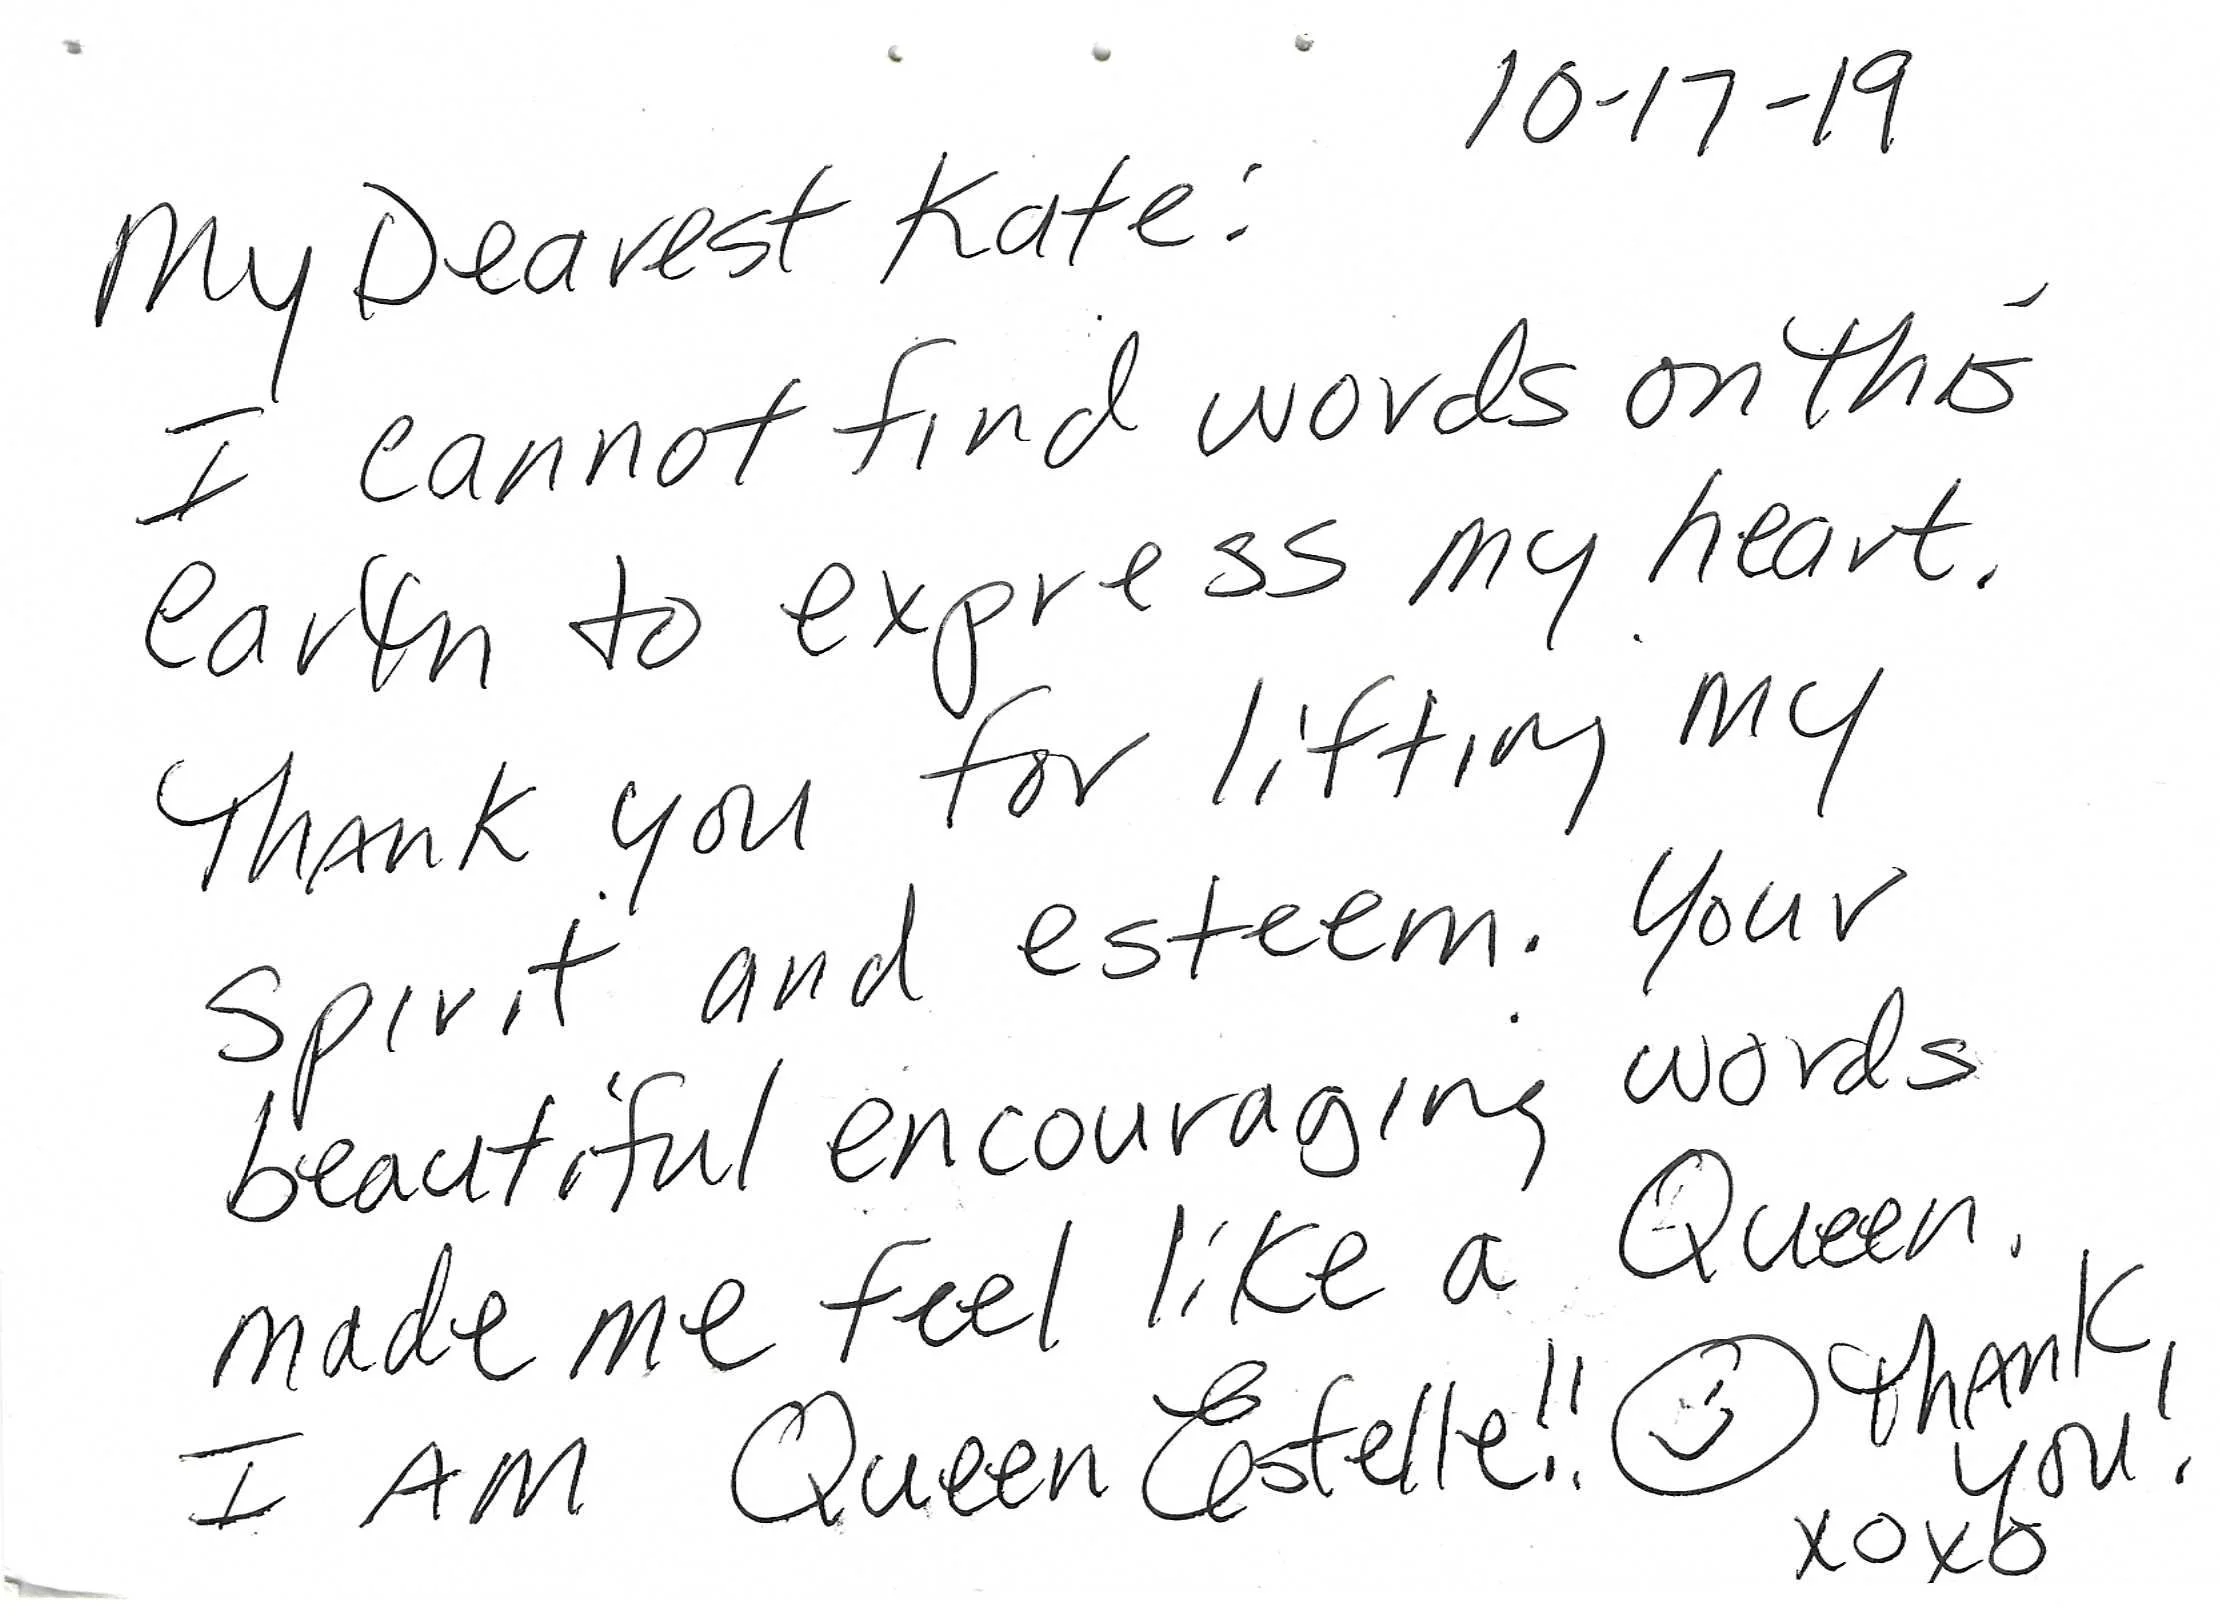 10-17-19
My Dearest Kate:
I cannot find words on this
earth to express my heart.
Thank you for lifting my
spirit and esteem. Your
beautiful encouraging words
made me feel like a Queen.
I AM Queen Estelle!! Thank
you!
xoxo